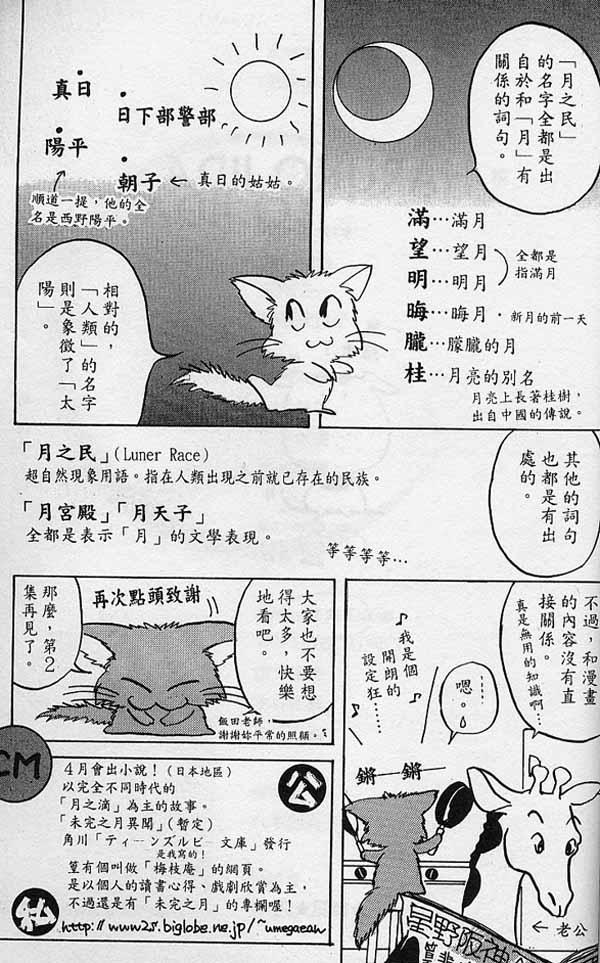 「月之民」
的名字全都是出
自於和「月」有
關係的詞句。
滿…滿月
望…望月
明…明月
全都是
指滿月
晦…晦月・新月的前一天
朧…朦朧的月
桂…月亮的別名
月亮上長著桂樹，
出自中國的傳說。
真日
日下部警部
陽平
朝子←真日的姑姑。
順道一提，他的全
名是西野陽平。
相對的，
「人類」的名字
則是象徵了「太
陽」。
其他的詞句
也都是有出
處的。
「月之民」(Luner Race)
超自然現象用語。指在人類出現之前就已存在的民族。
「月宮殿」「月天子」
全都是表示「月」的文學表現。
等等等等…
不過，和漫畫
的內容沒有直
接關係。
真是無用的知識啊…
嗯。
♪我是個
開朗的
設定狂……♪
鏘— 鏘—
←老公
星野阪神
大家也不要想
得太多，快樂
地看吧。
再次點頭致謝
飯田老師，
謝謝妳平常的照顧。
那麼，第2
集再見了。
CM
公
4月會出小說！(日本地區)
以完全不同時代的
「月之滴」為主的故事。
「未完之月異聞」(暫定)
角川「ティーンズルビー文庫」發行
是我寫的！
荁有個叫做「梅枝庵」的網頁。
是以個人的讀書心得、戲劇欣賞為主，
不過還是有「未完之月」的專欄喔！
私
http://www2s.biglobe.ne.jp/~umegaean